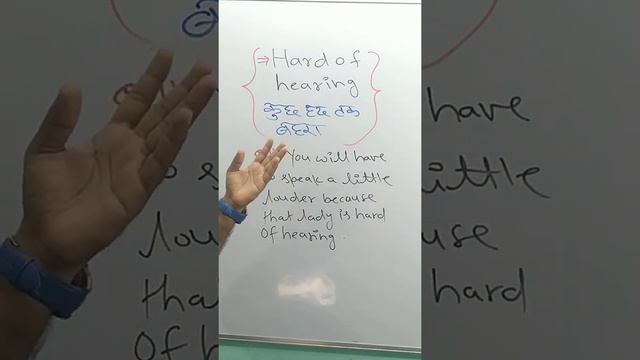 ⇒ Hard of
hearing
कुछ हद तक
बहरा
You will have
to speak a little
louder because
that lady is hard
of hearing.